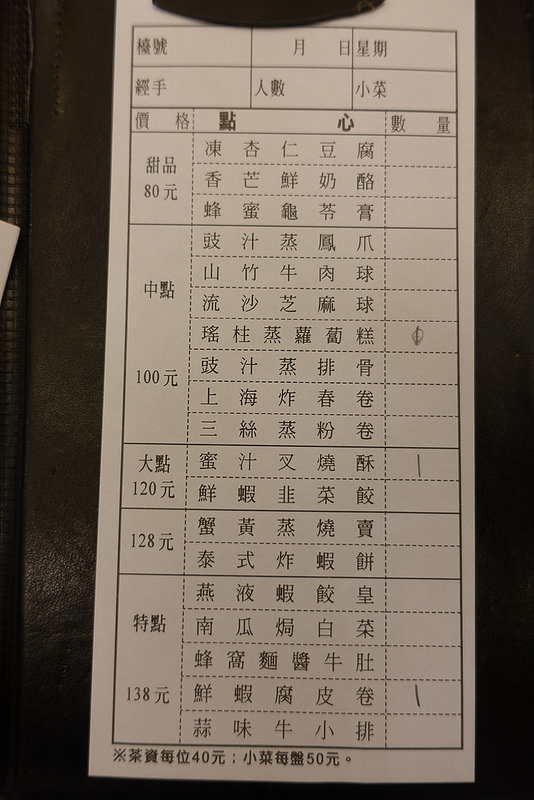 檯號 月 日 星期
經手 人數 小菜
價格 點心 數量
甜品 80元
凍杏仁豆腐
香芒鮮奶酪
蜂蜜龜苓膏
中點 100元
豉汁蒸鳳爪
山竹牛肉球
流沙芝麻球
瑤柱蒸蘿蔔糕
豉汁蒸排骨
上海炸春卷
三絲蒸粉卷
大點 120元
蜜汁叉燒酥 |
鮮蝦韭菜餃
128元
蟹黃蒸燒賣
泰式炸蝦餅
特點 138元
燕液蝦餃皇
南瓜焗白菜
蜂窩麵醬牛肚
鮮蝦腐皮卷 |
蒜味牛小排
※茶資每位40元；小菜每盤50元。